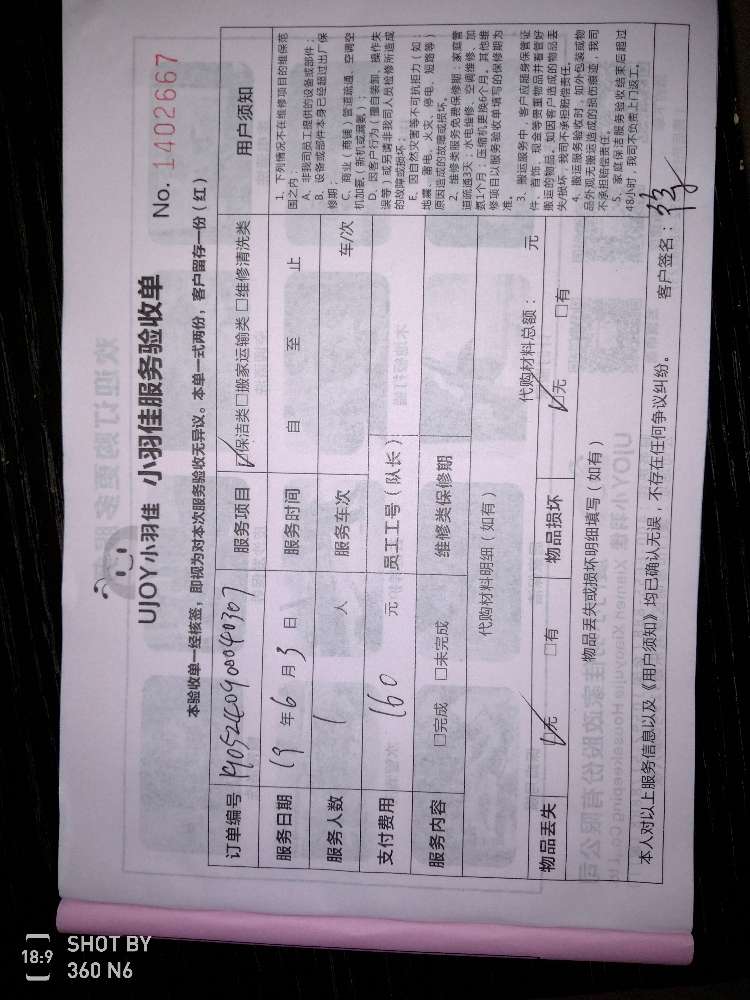 UJOY小羽佳 小羽佳服务验收单
No. 1402667
本验收单一经核签，即视为对本次服务验收无异议。本单一式两份，客户留存一份（红）
订单编号 19052409000040307 服务项目 ☑保洁类□搬家运输类 □维修清洗类
服务日期 19 年 6 月 3 日 服务时间 自 至 止
服务人数 1 人 服务车次 车/次
支付费用 160 元 员工工号（队长）
服务内容 □完成 □未完成 维修类保修期
代购材料明细（如有） 代购材料总额： 元
物品丢失 ☑无 □有 物品损坏 ☑无 □有
物品丢失或损坏明细填写（如有）
用户须知
1、下列情况不在维修项目的维保范
围之内：
A、非我司员工提供的设备或部件；
B、设备或部件本身已经超过出厂保
修期；
C、商业（商铺）管道疏通、空调空
机加氨（新机或漏氨）；
D、因客户行为（擅自装卸，操作失
误等）或另请非我司人员检修所造成
的故障或损坏；
E、因自然灾害等不可抗拒力（如：
地震、雷电、火灾、停电、短路等）
原因造成的故障或损坏。
2、维修类服务免费保修期：家庭管
道疏通3天；水电维修、空调维修、加
氨1个月；压缩机更换6个月。其他维
修项目以服务验收单填写的保修期为
准。
3、搬运服务中，客户应随身保管证
件、首饰、现金等贵重物品并看管好
搬运的物品，如因客户造成的物品丢
失/损坏，我司不承担赔偿责任。
4、搬运服务验收时，如外包装或物
品外观无搬运造成的损伤痕迹，我司
不承担赔偿责任。
5、家庭保洁服务验收结束后超过
48小时，我司不负责上门返工。
本人对以上服务信息以及《用户须知》均已确认无误，不存在任何争议纠纷。 客户签名：
18:9 SHOT BY
360 N6